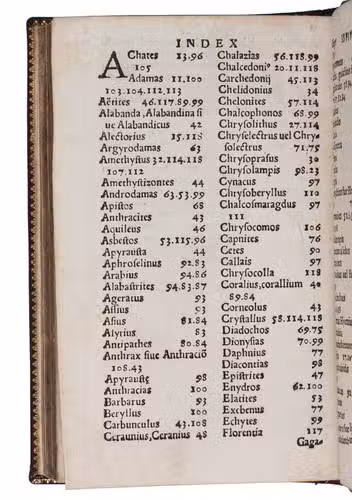 INDEX
AChates 13.96
105
Adamas 11.100
103.104.112.113
Aëtites 46.117.89.99
Alabanda, Alabandina ſi
ue Alabandicus 42
Alectorius 15.118
Argyrodamas 63
Amethyſtus 32.114.118
107.112
Amethyſtizontes 44
Androdamas 63.53.99
Apiſtos 68
Anthracites 43
Aquileus 46
Asbeſtos 53.115.96
Apyrauſta 44
Aphroſelinus 92.83
Arabius 94.86
Alabaſtrites 94.83.87
Ageratus 93
Aſſius 93
Aſius 81.84
Alyrius 83
Antipathes 80.84
Anthrax ſiue Anthraciō
108.43
Apyrauſtę 98
Anthracias 100
Barbarus 93
Beryllus 100
Carbunculus 43.108
Ceraunius, Ceranius 48
Chalazias 56.118.99
Chalcedoniꝰ 20.11.118
Carchedonij 45.113
Chelidonius 34
Chelonites 57.114
Chalcophonos 68.99
Chryſolithus 27.114
Chryſelectrus uel Chry
ſolectrus 71.75
Chryſopraſus 30
Chryſolampis 98.23
Cynacus 97
Chryſoberyllus 110
Chalcoſmaragdus 97
111
Chryſocomos 106
Capnites 76
Cetes 90
Callais 97
Chryſocolla 118
Coralius, corallium 40
89.84
Corneolus 43
Cryſtallus 58.114.118
Diadochos 69.75
Dionyſias 70.99
Daphnius 77
Diacontias 98
Epiſtrites 47
Enydros 62.100
Elatites 53
Exebenus 77
Echytes 99
Florentia 117
Gaga⸗